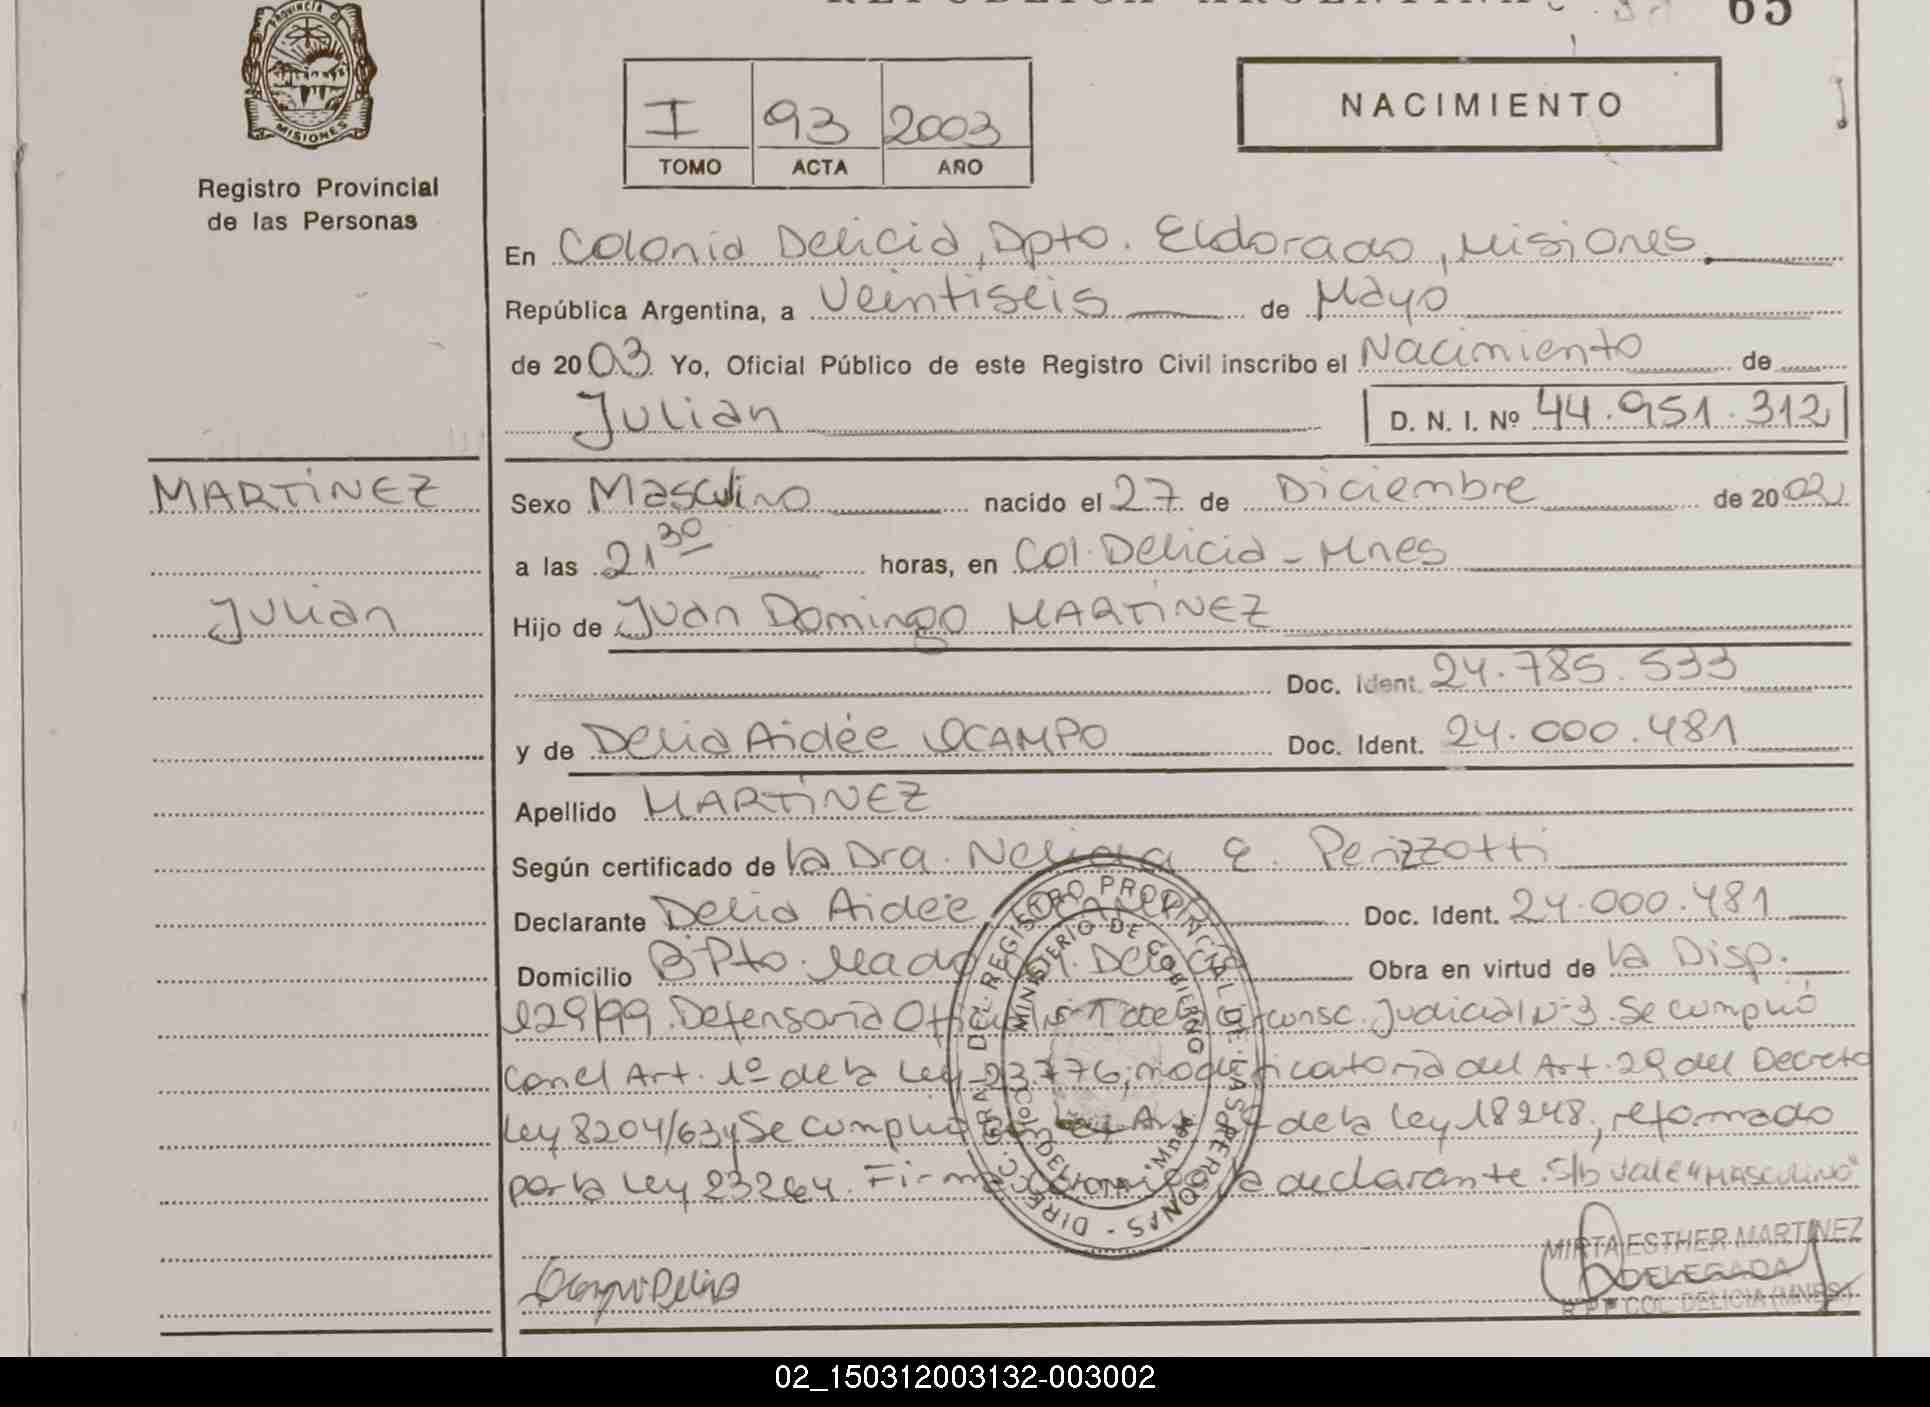 REPUBLICA ARGENTINA
65
PROVINCIA DE
MISIONES
Registro Provincial
de las Personas
I 93 2003
TOMO ACTA AÑO
NACIMIENTO
En Colonia Delicia, Dpto. Eldorado, Misiones
República Argentina, a Veintiseis de Mayo
de 2003 Yo, Oficial Público de este Registro Civil inscribo el Nacimiento de
Julian D. N. I. Nº 44.951.312
MARTINEZ
Julian
Sexo Masculino nacido el 27 de Diciembre de 2002
a las 21 30 horas, en Col. Delicia - Mnes
Hijo de Juan Domingo MARTINEZ
Doc. Ident. 24.785.533
y de Delia Aidée OCAMPO Doc. Ident. 24.000.481
Apellido MARTINEZ
Según certificado de la Dra. E. Perizzotti
Declarante Delia Aidée OCAMPO Doc. Ident. 24.000.481
Domicilio Bº Pto. Mado Delicia Obra en virtud de la Disp.
129/99. Defensoria Oficial Nº 1 de la Circunsc. Judicial Nº 3. Se cumplió
con el Art. 1º de la Ley 23776, modificatoria del Art. 29 del Decreto
Ley 8204/63 y Se cumplió con el Art. de la Ley 18248, reformado
por la Ley 23264. Firma la declarante. S/b vale "MASCULINO"
DIREC. GRAL. DEL REGISTRO PROVINCIAL DE LAS PERSONAS
MINISTERIO DE GOBIERNO
Ocampo Delia
MIRTA ESTHER MARTINEZ
DELEGADA
R.P.P. COL. DELICIA (MNES.)
02_150312003132-003002